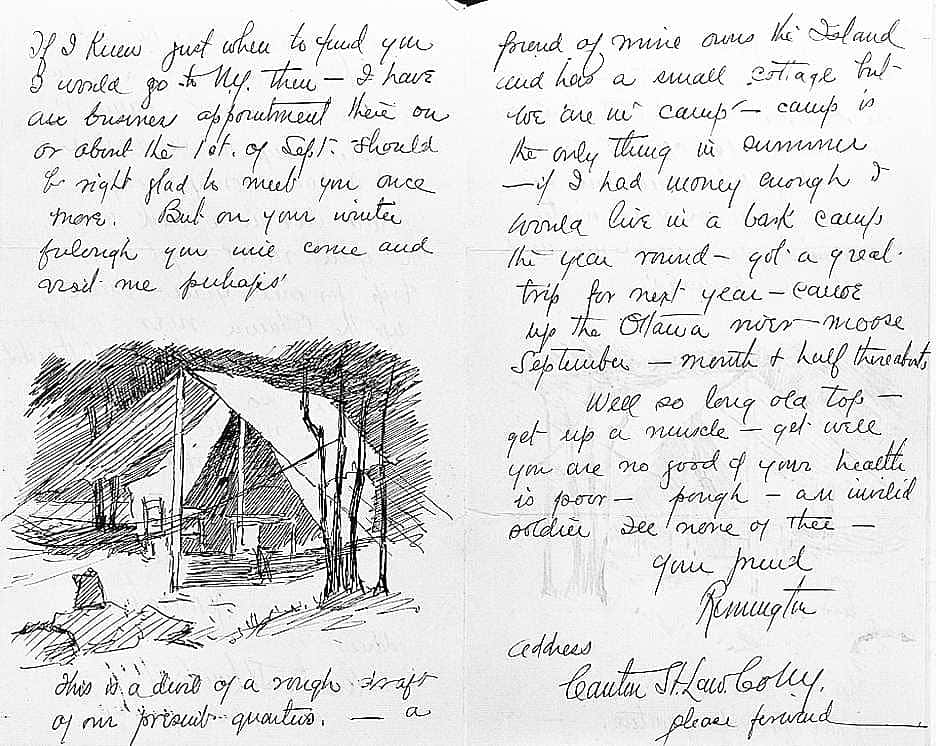 If I knew just when to find you
I would go to N.Y. then — I have
an business appointment there on
or about the 1st. of Sept. Should
be right glad to meet you once
more. But on your winter
fulough you will come and
visit me perhaps
This is a devil of a rough draft
of our present quarters. — a
friend of mine owns the Island
and has a small cottage but
we are in camp — camp is
the only thing in summer
— if I had money enough I
would live in a bark camp
the year round — got a great
trip for next year — canoe
up the Ottawa river — moose
September — month & half thereabouts
Well so long old top —
get up a muscle — get well
you are no good if your health
is poor — pough — an invalid
soldier I'll none of thee —
Your friend
Remington
address
Canton St. Law. Co N.Y.
please forward